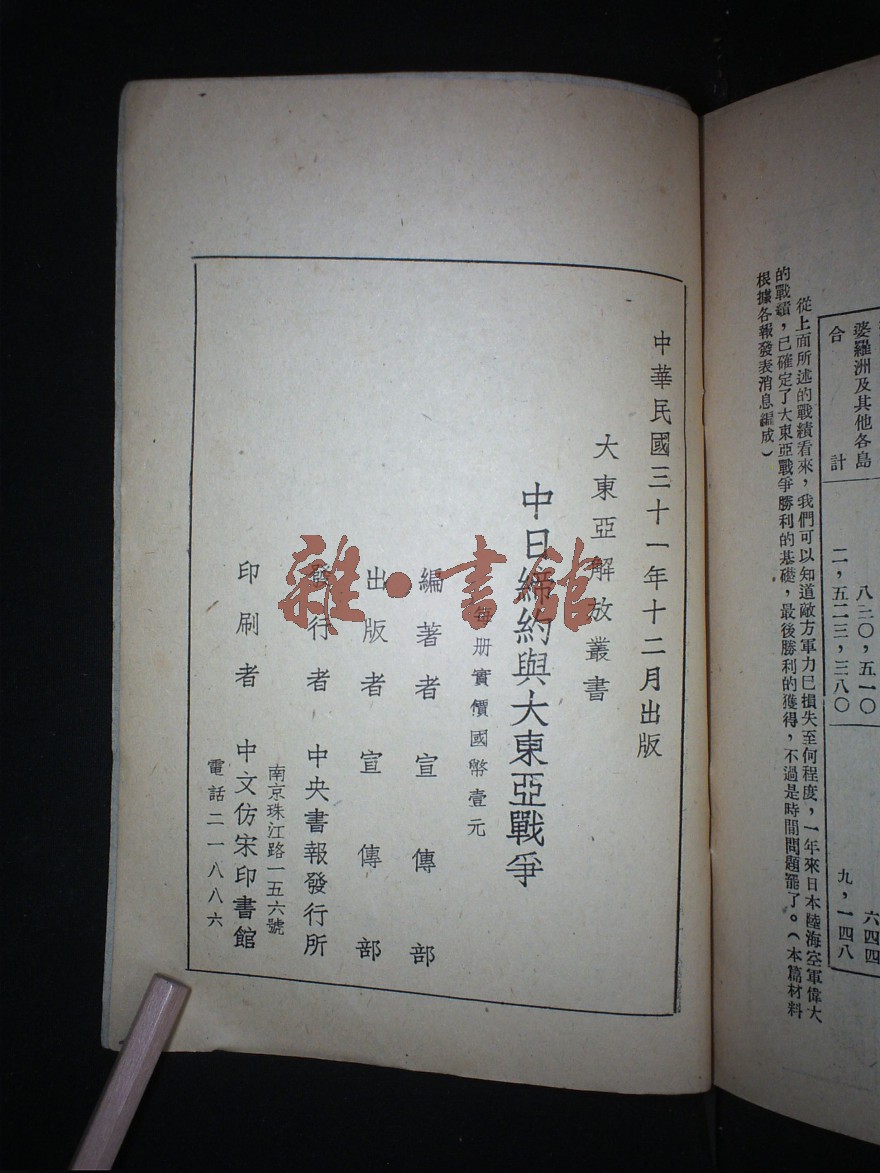 婆羅洲及其他各島 八三〇,五一〇 六四四
合計 二,五二三,三八〇 九,一四八
從上面所述的戰績看來,我們可以知道敵方軍力已損失至何程度,一年來日本陸海空軍偉大
的戰績,已確定了大東亞戰爭勝利的基礎,最後勝利的獲得,不過是時間問題罷了。(本篇材料
根據各報發表消息編成)
中華民國三十一年十二月出版
大東亞解放叢書
中日締約與大東亞戰爭
每册實價國幣壹元
編著者 宣傳部
出版者 宣傳部
發行者 中央書報發行所
南京珠江路一五六號
印刷者 中文仿宋印書館
電話二一八八六
雜·書館